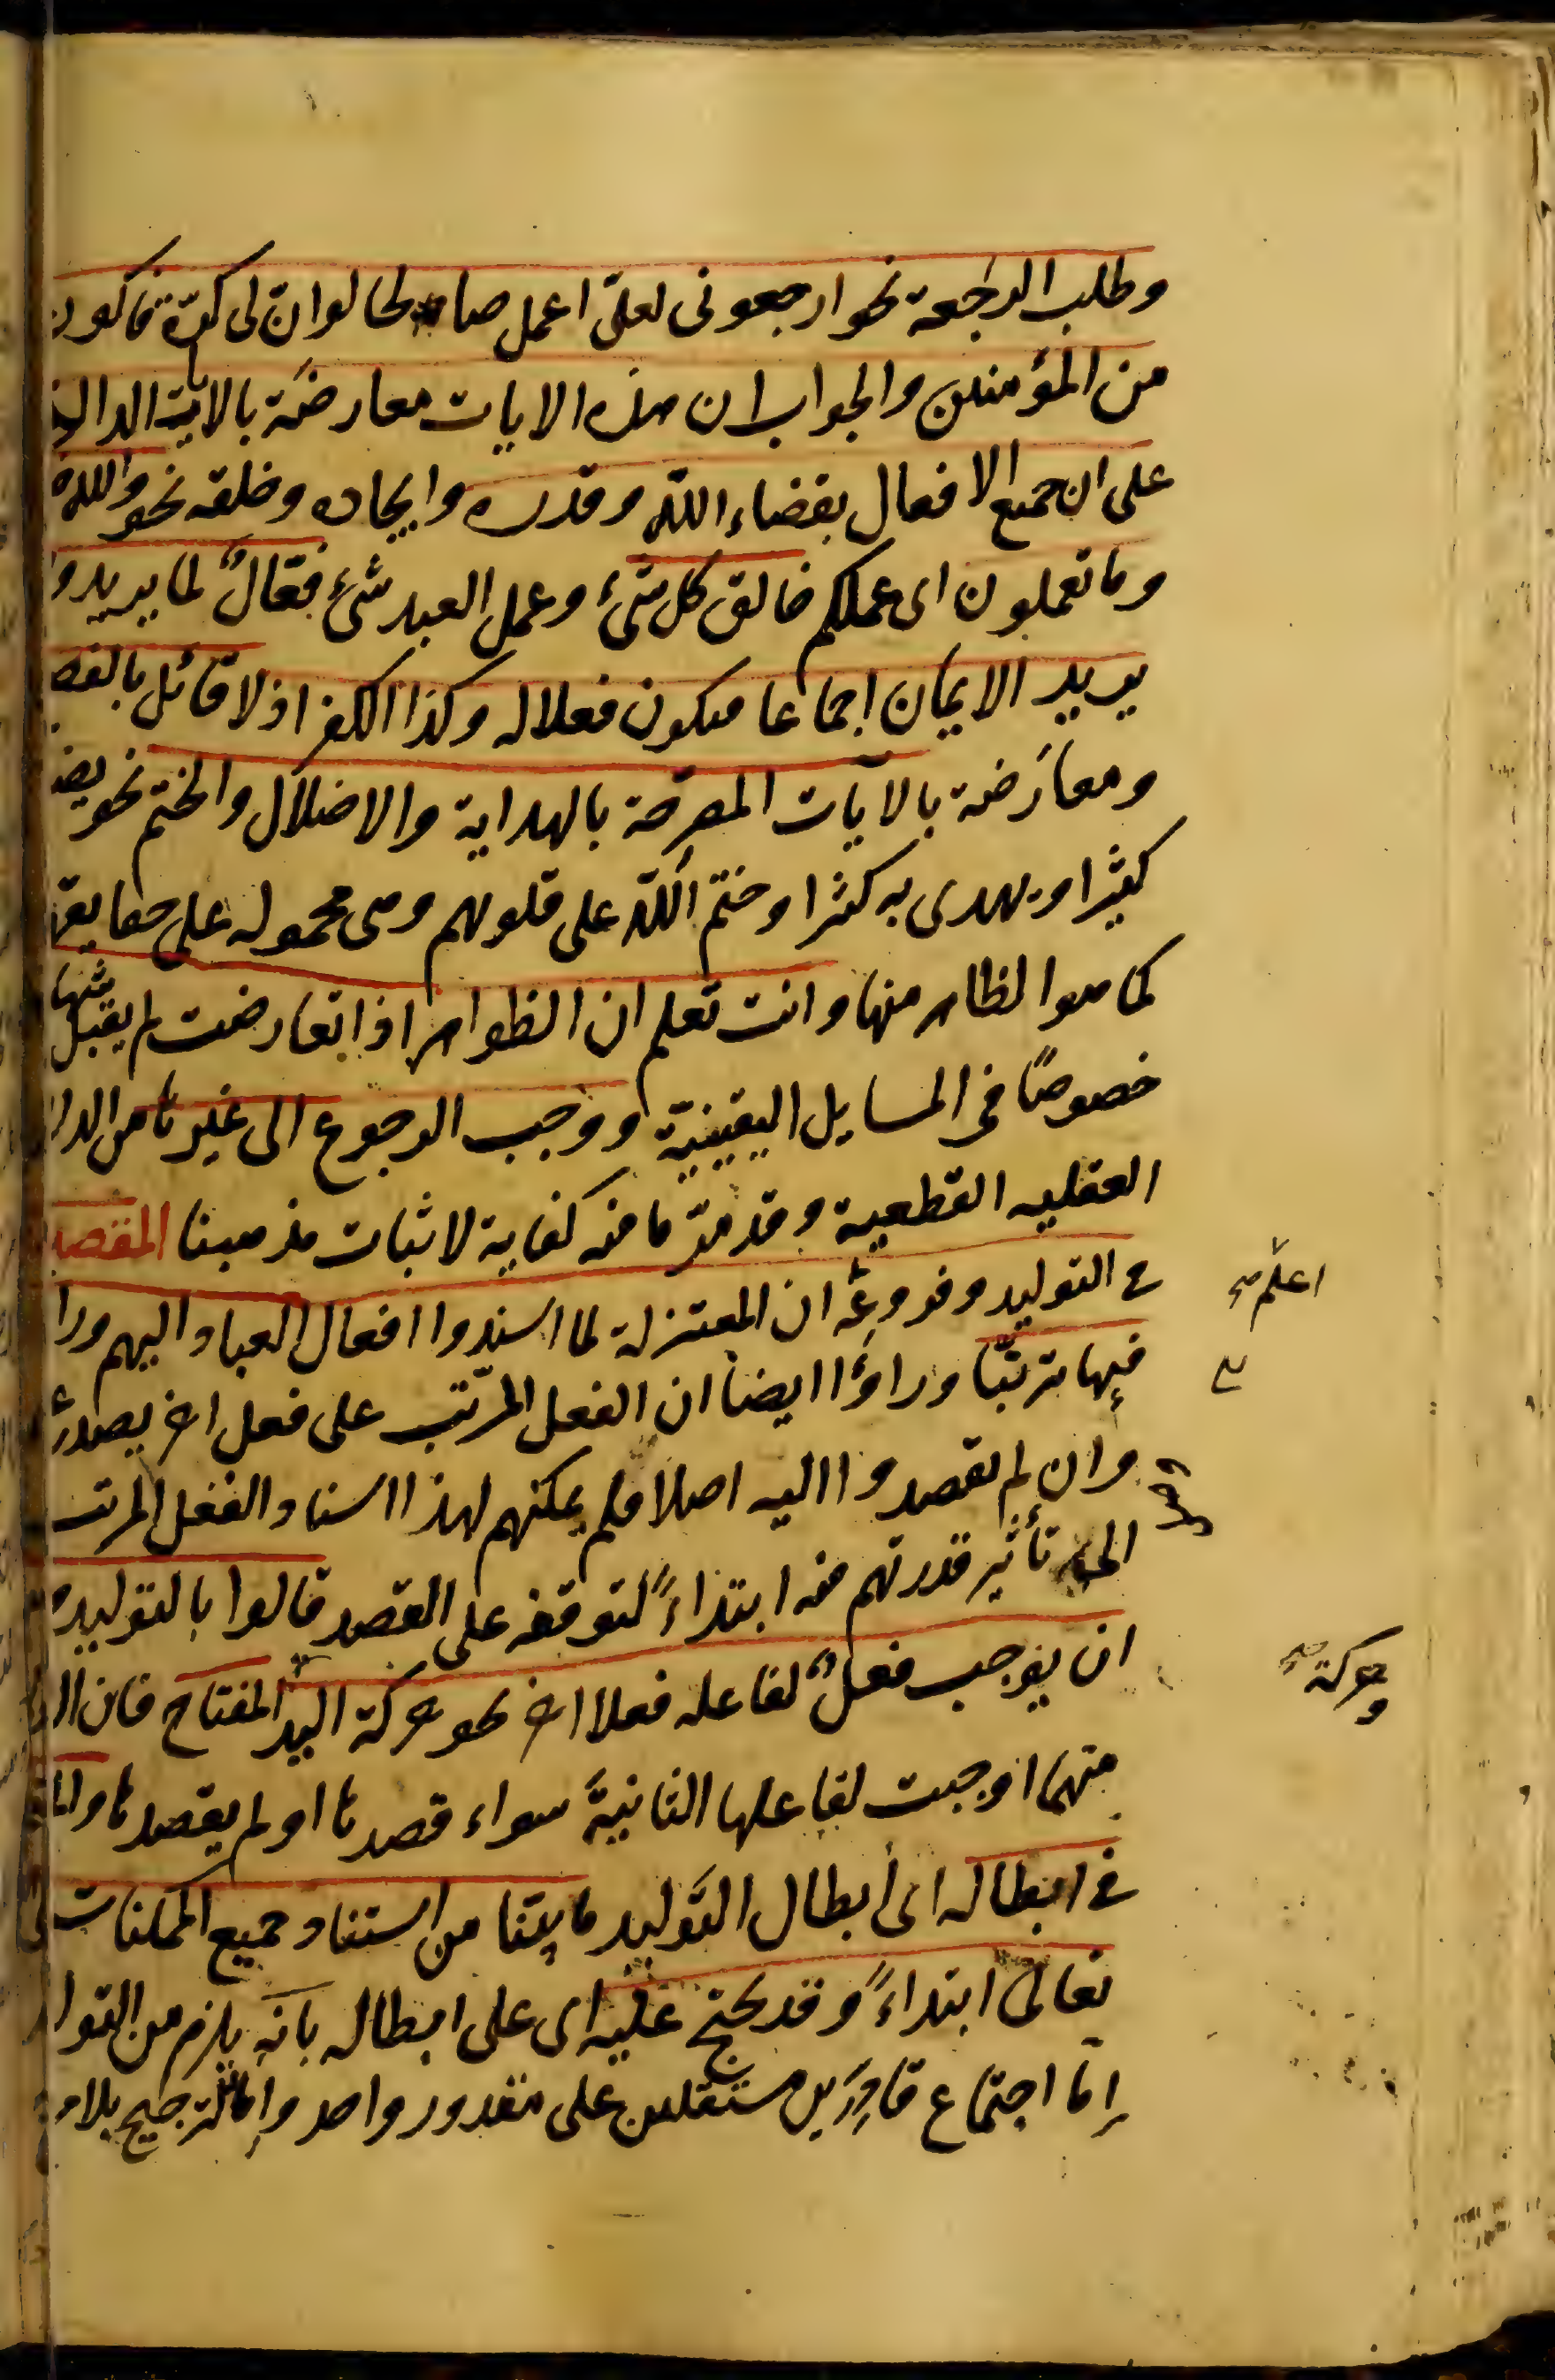 وطلب الرجعة نحو ارجعونى لعلى اعمل صالحا لو ان لى كرّة فاكون
من المؤمنين والجواب ان هذه الايات معارضة بالايات الدالة
على ان جميع الافعال بقضاء الله وقدره وايجاده وخلقه نحو والله
وما تعملون اى عملكم خالق كل شئ وعمل العبد شئ فعّالٌ لما يريد و
يريد الايمان اجماعا فيكون فعلا له وكذا الكفر اذ لا قائل بالفصـ
ومعارَضة بالآيات المصرّحة بالهداية والاضلال والختم نحو يضـ
كثيرا ويهدى به كثيرا وختم الله على قلوبهم وهى محمولة على حقايقها
كما هو الظاهر منها وانت تعلم ان الظواهر اذا تعارضت لم يقبل شهادتها
خصوصًا فى المسايل اليقينيّة ووجب الرجوع الى غيرها من الد
العقليه القطعية وقد مرّ ما فيه كفاية لاثبات مذهبنا المقصد
فى التوليد وفروعه ان المعتزلة لما اسندوا افعال العباد اليهم ورا
فيها ترتّبًا وراوا ايضا ان الفعل المرتّب على فعل اخر يصدر
وان لم يقصدوا اليه اصلا فلم يمكنهم لهذا اسناد الفعل المرتب
الى تأثير قدرتهم فيه ابتداءً لتوقفه على القصد قالوا بالتوليد
ان يوجب فعلٌ لفاعله فعلا اخر نحو حركة اليد المفتاح فان الا
منهما اوجبت لفاعلها الثانية سواء قصدها او لم يقصدها والمـ
فى ابطاله اى ابطال التّوليد ما بيّنا من استناد جميع الممكنات
تعالى ابتداءً وقد يحتج عليه اى على ابطاله بانه يلزم من التو
إمّا اجتماع قادِرَين مستقلين على مقدور واحد وإما الترجيح بلا مر
اعلم صح
وحركة صح